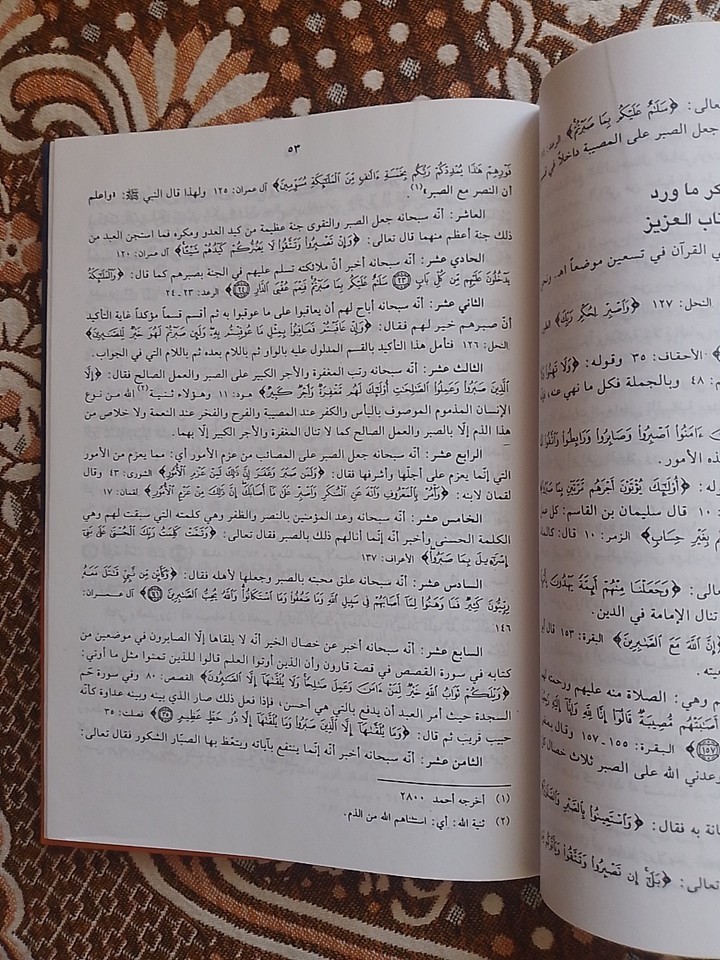 ٥٣
فَوْرِهِمْ هَٰذَا يُمْدِدْكُمْ رَبُّكُم بِخَمْسَةِ ءَالَٰفٍ مِّنَ ٱلْمَلَٰٓئِكَةِ مُسَوِّمِينَ﴾ آل عمران: ١٢٥ ولهذا قال النبي ﷺ: «واعلم
أن النصر مع الصبر»(١).
العاشر: أنّه سبحانه جعل الصبر والتقوى جنة عظيمة من كيد العدو ومكره فما استجن العبد من
ذلك جنة أعظم منهما قال تعالى: ﴿وَإِن تَصْبِرُوا۟ وَتَتَّقُوا۟ لَا يَضُرُّكُمْ كَيْدُهُمْ شَيْـًٔا﴾ آل عمران: ١٢٠
الحادي عشر: أنّه سبحانه أخبر أنّ ملائكته تسلم عليهم في الجنة بصبرهم كما قال: ﴿وَٱلْمَلَٰٓئِكَةُ
يَدْخُلُونَ عَلَيْهِم مِّن كُلِّ بَابٍ ۝٢٣ سَلَٰمٌ عَلَيْكُم بِمَا صَبَرْتُمْ فَنِعْمَ عُقْبَى ٱلدَّارِ ۝٢٤﴾ الرعد: ٢٣ـ ٢٤
الثاني عشر: أنّه سبحانه أباح لهم أن يعاقبوا على ما عوقبوا به ثم أقسم قسماً مؤكداً غاية التأكيد
أنّ صبرهم خير لهم فقال: ﴿وَإِنْ عَاقَبْتُمْ فَعَاقِبُوا۟ بِمِثْلِ مَا عُوقِبْتُم بِهِۦ وَلَئِن صَبَرْتُمْ لَهُوَ خَيْرٌ لِّلصَّٰبِرِينَ﴾
النحل: ١٢٦ فتأمل هذا التأكيد بالقسم المدلول عليه بالواو ثم باللام بعده ثم باللام التي في الجواب.
الثالث عشر: أنّه سبحانه رتب المغفرة والأجر الكبير على الصبر والعمل الصالح فقال: ﴿إِلَّا
ٱلَّذِينَ صَبَرُوا۟ وَعَمِلُوا۟ ٱلصَّٰلِحَٰتِ أُو۟لَٰٓئِكَ لَهُم مَّغْفِرَةٌ وَأَجْرٌ كَبِيرٌ﴾ هود: ١١ وهؤلاء ثنية(٢) الله من نوع
الإنسان المذموم الموصوف باليأس والكفر عند المصيبة والفرح والفخر عند النعمة ولا خلاص من
هذا الذم إلّا بالصبر والعمل الصالح كما لا تنال المغفرة والأجر الكبير إلّا بهما.
الرابع عشر: أنّه سبحانه جعل الصبر على المصائب من عزم الأمور أي: مما يعزم من الأمور
التي إنّما يعزم على أجلّها وأشرفها فقال: ﴿وَلَمَن صَبَرَ وَغَفَرَ إِنَّ ذَٰلِكَ لَمِنْ عَزْمِ ٱلْأُمُورِ﴾ الشورى: ٤٣ وقال
لقمان لابنه: ﴿وَأْمُرْ بِٱلْمَعْرُوفِ وَٱنْهَ عَنِ ٱلْمُنكَرِ وَٱصْبِرْ عَلَىٰ مَآ أَصَابَكَ إِنَّ ذَٰلِكَ مِنْ عَزْمِ ٱلْأُمُورِ﴾ لقمان: ١٧
الخامس عشر: أنّه سبحانه وعد المؤمنين بالنصر والظفر وهي كلمته التي سبقت لهم وهي
الكلمة الحسنى وأخبر أنّه إنما أنالهم ذلك بالصبر فقال تعالى: ﴿وَتَمَّتْ كَلِمَتُ رَبِّكَ ٱلْحُسْنَىٰ عَلَىٰ بَنِىٓ
إِسْرَٰٓءِيلَ بِمَا صَبَرُوا۟﴾ الأعراف: ١٣٧
السادس عشر: أنّه سبحانه علق محبته بالصبر وجعلها لأهله فقال: ﴿وَكَأَيِّن مِّن نَّبِىٍّ قَٰتَلَ مَعَهُۥ
رِبِّيُّونَ كَثِيرٌ فَمَا وَهَنُوا۟ لِمَآ أَصَابَهُمْ فِى سَبِيلِ ٱللَّهِ وَمَا ضَعُفُوا۟ وَمَا ٱسْتَكَانُوا۟ وَٱللَّهُ يُحِبُّ ٱلصَّٰبِرِينَ ۝١٤٦﴾ آل عمران:
١٤٦
السابع عشر: أنّه سبحانه أخبر عن خصال الخير أنّه لا يلقاها إلّا الصابرون في موضعين من
كتابه في سورة القصص في قصة قارون وأن الذين أوتوا العلم قالوا للذين تمنوا مثل ما أوتي:
﴿وَيْلَكُمْ ثَوَابُ ٱللَّهِ خَيْرٌ لِّمَنْ ءَامَنَ وَعَمِلَ صَٰلِحًا وَلَا يُلَقَّىٰهَآ إِلَّا ٱلصَّٰبِرُونَ﴾ القصص: ٨٠ وفي سورة حٓم
السجدة حيث أمر العبد أن يدفع بالتي هي أحسن، فإذا فعل ذلك صار الذي بينه وبينه عداوة كأنّه
حبيب قريب ثم قال: ﴿وَمَا يُلَقَّىٰهَآ إِلَّا ٱلَّذِينَ صَبَرُوا۟ وَمَا يُلَقَّىٰهَآ إِلَّا ذُو حَظٍّ عَظِيمٍ ۝٣٥﴾ فصلت: ٣٥
الثامن عشر: أنّه سبحانه أخبر أنّه إنّما ينتفع بآياته ويتعّظ بها الصبّار الشكور فقال تعالى:
(١) أخرجه أحمد ٢٨٠٠
(٢) ثنية الله: أي: استثناهم الله من الذم.
تعالى: ﴿سَلَٰمٌ عَلَيْكُم بِمَا صَبَرْتُمْ﴾ الرعد:
جعل الصبر على المصيبة داخلاً في
كر ما ورد
تاب العزيز
في القرآن في تسعين موضعاً اهـ. ونحن
النحل: ١٢٧ ﴿وَٱصْبِرْ لِحُكْمِ رَبِّكَ﴾
﴾ الأحقاف: ٣٥ وقوله: ﴿وَلَا تَهِنُوا۟
٤٨ وبالجملة فكل ما نهي عنه،
ءَامَنُوا۟ ٱصْبِرُوا۟ وَصَابِرُوا۟ وَرَابِطُوا۟ وَٱتَّقُوا۟
ذه الأمور.
له: ﴿أُو۟لَٰٓئِكَ يُؤْتَوْنَ أَجْرَهُم مَّرَّتَيْنِ بِمَا صَبَرُوا۟
١٠ قال سليمان بن القاسم: كل
بِغَيْرِ حِسَابٍ﴾ الزمر: ١٠ قال: كالماء
الى: ﴿وَجَعَلْنَا مِنْهُمْ أَئِمَّةً يَهْدُونَ
تنال الإمامة في الدين.
﴿إِنَّ ٱللَّهَ مَعَ ٱلصَّٰبِرِينَ﴾ البقرة: ١٥٣ قال
م وهي: الصلاة منه عليهم ورحمته
أَصَٰبَتْهُم مُّصِيبَةٌ قَالُوٓا۟ إِنَّا لِلَّهِ وَإِنَّآ إِلَيْهِ
۝١٥٧﴾ البقرة: ١٥٥ -١٥٧ وقال
وعدني الله على الصبر ثلاث خصال
نة به فقال: ﴿وَٱسْتَعِينُوا۟ بِٱلصَّبْرِ وَٱلصَّلَوٰةِ
تعالى: ﴿بَلَىٰٓ إِن تَصْبِرُوا۟ وَتَتَّقُوا۟ وَيَأْتُوكُم